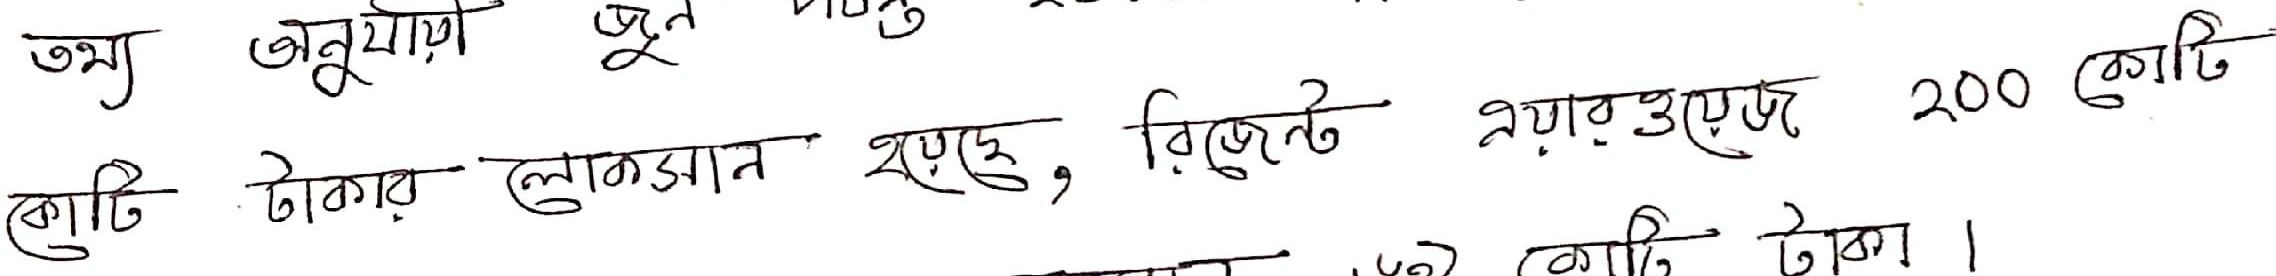 তথ্য অনুযায়ী জুন
কোটি টাকার লোকসান হয়েছে, রিজেন্ট এয়ারওয়েজ ২০০ কোটি
কোটি টাকা ।